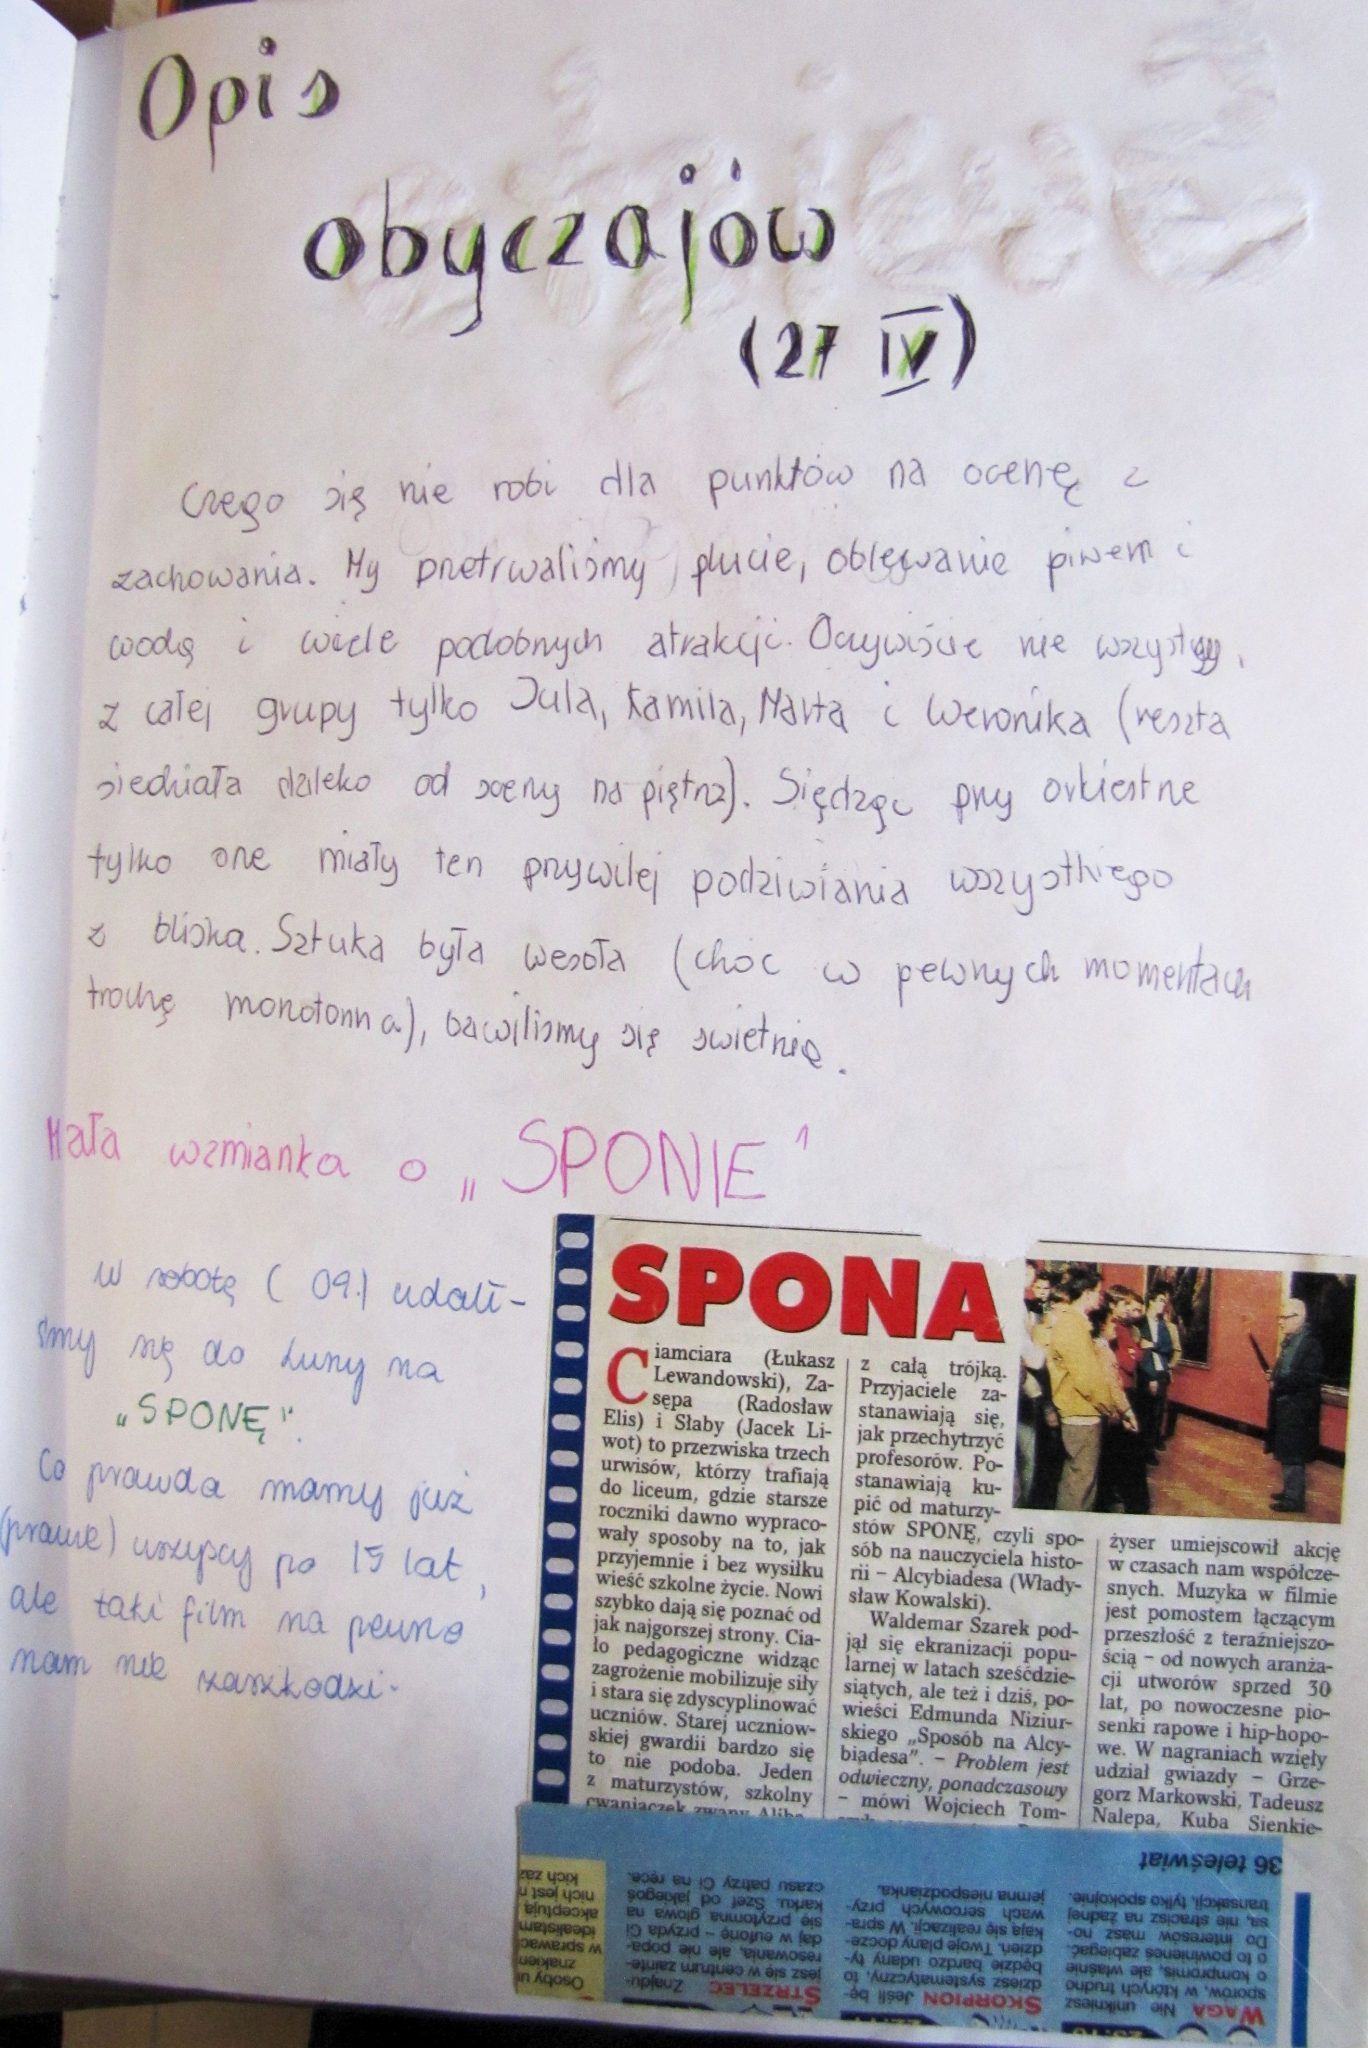 Opis
obyczajów
(27 IV)
Czego się nie robi dla punktów na ocenę z
zachowania. My przetrwaliśmy plucie, oblewanie piwem i
wodą i wiele podobnych atrakcji. Oczywiście nie wszyscy,
z całej grupy tylko Jula, Kamila, Marta i Weronika (reszta
siedziała daleko od sceny na piętrze). Siędząc przy orkiestrze
tylko one miały ten przywilej podziwiania wszystkiego
z bliska. Sztuka była wesoła (choc w pewnych momentach
trochę monotonna), bawiliśmy się swietnie.
Mała wzmianka o „SPONIE"
W sobotę ( 09.) udali-
śmy się do Luny na
„SPONĘ".
Co prawda mamy już
(prawie) wszyscy po 15 lat,
ale taki film na pewno
nam nie zaszkodzi.
SPONA
Ciamciara (Łukasz
Lewandowski), Za-
sępa (Radosław
Elis) i Słaby (Jacek Li-
wot) to przezwiska trzech
urwisów, którzy trafiają
do liceum, gdzie starsze
roczniki dawno wypraco-
wały sposoby na to, jak
przyjemnie i bez wysiłku
wieść szkolne życie. Nowi
szybko dają się poznać od
jak najgorszej strony. Cia-
ło pedagogiczne widząc
zagrożenie mobilizuje siły
i stara się zdyscyplinować
uczniów. Starej uczniow-
skiej gwardii bardzo się
to nie podoba. Jeden
z maturzystów, szkolny
cwaniaczek zwany Aliba-
z całą trójką.
Przyjaciele za-
stanawiają się,
jak przechytrzyć
profesorów. Po-
stanawiają ku-
pić od maturzy-
stów SPONĘ, czyli spo-
sób na nauczyciela histo-
rii – Alcybiadesa (Włady-
sław Kowalski).
Waldemar Szarek pod-
jął się ekranizacji popu-
larnej w latach sześćdzie-
siątych, ale też i dziś, po-
wieści Edmunda Niziur-
skiego „Sposób na Alcy-
biadesa". – Problem jest
odwieczny, ponadczasowy
– mówi Wojciech Tom-
żyser umiejscowił akcję
w czasach nam współcze-
snych. Muzyka w filmie
jest pomostem łączącym
przeszłość z teraźniejszo-
ścią – od nowych aranża-
cji utworów sprzed 30
lat, po nowoczesne pio-
senki rapowe i hip-hopo-
we. W nagraniach wzięły
udział gwiazdy – Grze-
gorz Markowski, Tadeusz
Nalepa, Kuba Sienkie-
36 teleświat
WAGA Nie unikniesz
sporów, w których trudno
o kompromis, ale właśnie
o to powinieneś zabiegać.
Do interesów masz no-
sa, nie stracisz na żadnej
transakcji, tylko spokojnie.
SKORPION Jeśli bę-
dziesz systematyczny, to
będzie bardzo udany ty-
dzień. Twoje plany docze-
kają się realizacji. W spra-
wach sercowych przy-
jemna niespodzianka.
STRZELEC Znajdu-
jesz się w centrum zainte-
resowania, ale nie popa-
daj w euforię – przyda Ci
się przytomna głowa na
karku. Szef od jakiegoś
czasu patrzy Ci na ręce.
Osoby
znakiem
w sprawac
idealistam
akceptują
nich jest
kich